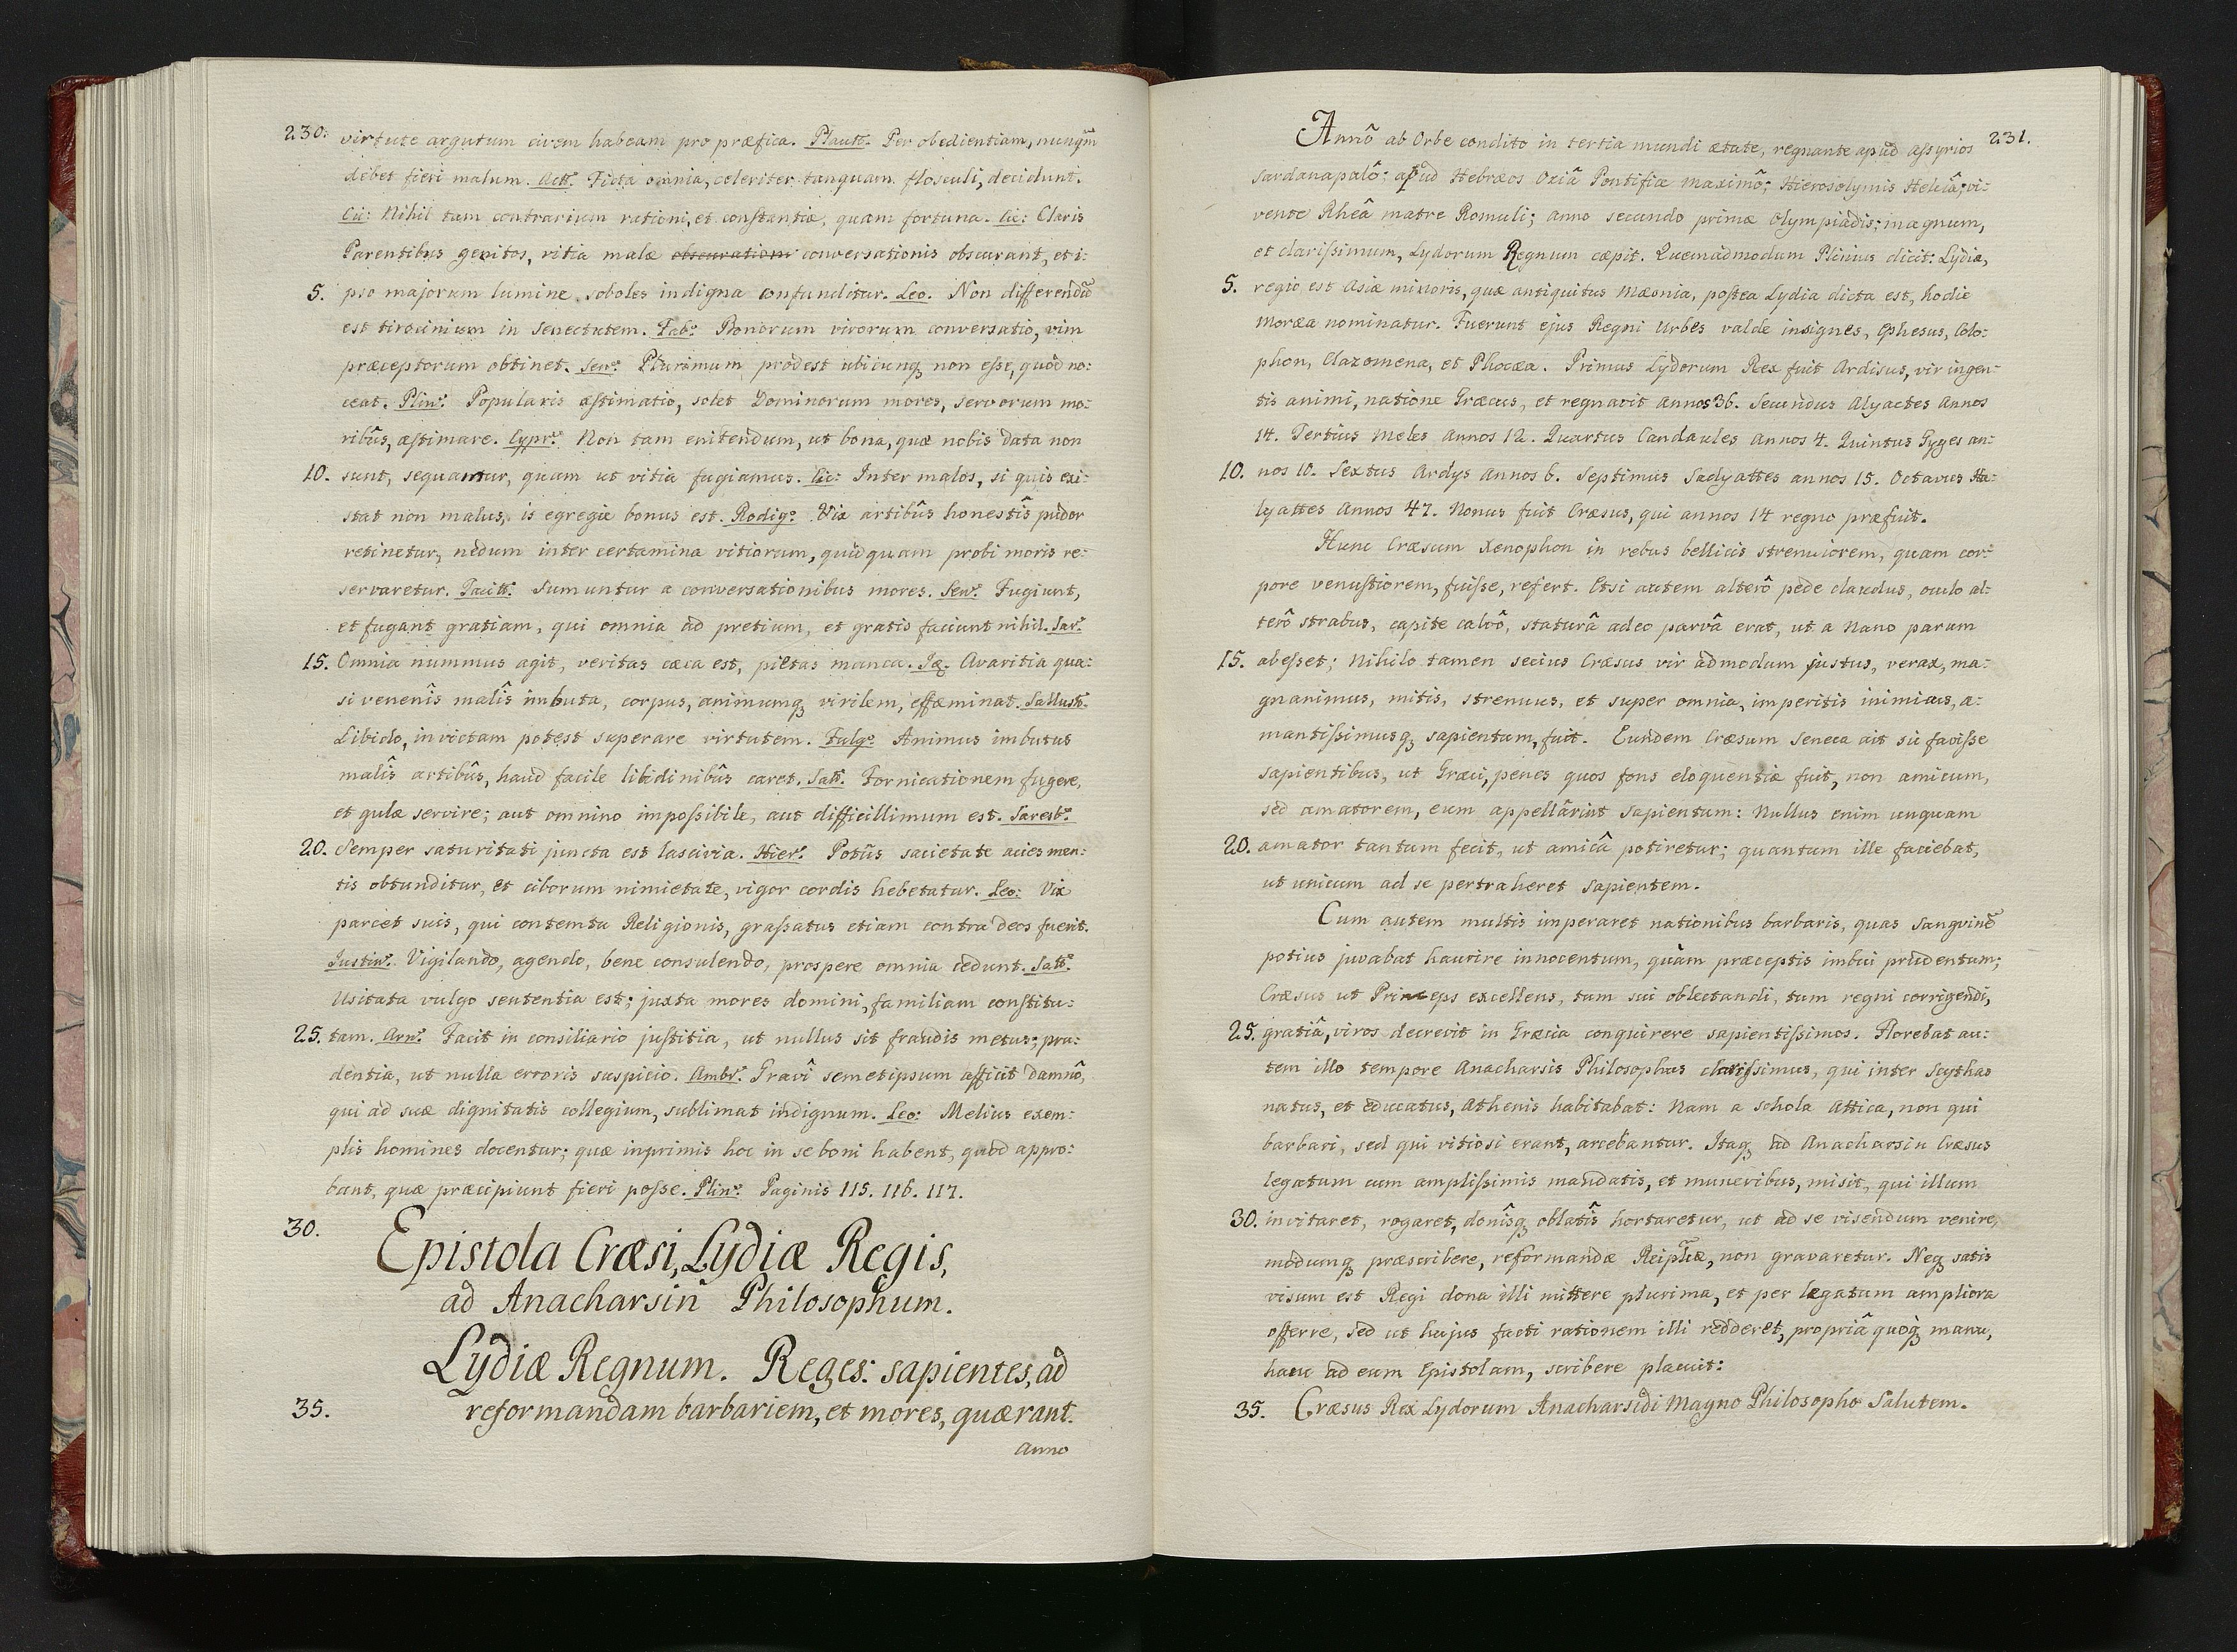 230. virtute argutum civem habeam pro præfica. Plautt. Per obedientiam, nunqm̃
debet fieri malum. Act. Ficta omnia, celeriter tanquam flosculi, decidunt.
Cic: Nihil tam contrarium rationi, et constantiæ, quam fortuna. Cic: Claris
Parentibus genitos, vitia malæ obscurationi conversationis obscurant, et i:
5. pso majorum lumine soboles indigna confunditur. Leo. Non differendũ
est tirocinium in senectutem. Fab: Bonorum virorum conversatio, vim
præceptorum obtinet. Sen: Plurimum prodest ubicunq non esse, quòd no:
ceat. Plin: Popularis æstimatio, solet Dominorum mores, servorum mo:
ribûs, æstimare. Cypr: Non tam enitendum, ut bona, quæ nobis data non
10. sunt, sequantur, quam ut vitia fugiamus. Cic: Inter malos, si quis exi:
stat non malus, is egregie bonus est. Rodig: Vix artibûs honestîs pudor
retinetur, nedum inter certamina vitiorum, quidquam probi moris re:
servaretur. Tacitt: Sumuntur a conversationibus mores. Sen: Fugiunt,
et fugant gratiam, qui omnia ad pretium, et gratis faciunt nihil. Sar:
15. Omnia nummus agit, veritas cæca est, pietas manca. Avaritia qua:
si venenîs malîs imbuta, corpus, animumq virilem, effæminat. Sallust:
Libido, invictam potest superare virtutem. Fulg: Animus imbutus
malîs artibûs, haud facile libidinibûs caret. Sall: Fornicationem fugere,
et gulæ servire; aut omnino impossibile, aut difficillimum est. Saresb:
20. Semper saturitati juncta est lascivia. Hier: Potûs sacietate acies men:
tis obtunditur, et ciborum nimietate, vigor cordis hebetatur. Leo: Vix
parcet suis, qui contemtu Religionis, grassatus etiam contra deos fuerit.
Justin: Vigilando, agendo, bene consulendo, prospere omnia cedunt. Sall:
Usitata vulgo sententia est; juxta mores domini, familiam constitu:
25. tam. Arn: Facit in consiliario justitia, ut nullus sit fraudis metus; pru:
dentia, ut nulla erroris suspicio. Ambr: Gravî semetipsum afficit damnô,
qui ad suæ dignitatis collegium, sublimat indignum. Leo: Melius exem:
plis homines docentur; quæ inprimis hoc in se boni habent, quòd appro:
bant, quæ præcipiunt fieri posse. Plin: Paginis 115. 116. 117.
30. Epistola Cræsi, Lydiæ Regis,
ad Anacharsin Philosophum.
Lydiæ Regnum. Reges: sapientes, ad
35. reformandam barbariem, et mores, quærant.
Anno
Annô ab Orbe condito in tertia mundi ætate, regnante apud assyrios 231.
Sardanapalô: apud Hebræos Oziâ Pontifice maximô; Hierosolymis Helciâ; vi:
vente Rheâ matre Romuli; anno secundo primæ Olympiadis; magnum,
et clarissimum, Lydorum Regnum cæpit. Quemadmodum Plinius dicit: Lydia,
5. regio est Asiæ minoris, quæ antiquitus Mæonia, postea Lydia dicta est, hodie
moræa nominatur. Fuerunt ejus Regni Urbes valde insignes, Ephesus, Colo:
phon, Clazomena, et Phocæa. Primus Lydorum Rex fuit Ardisus, vir ingen:
tis animi, natione Græcus, et regnavit annos 36. Secundus Alyactes Annos
14. Tertius Meles Annos 12. Quartus Candaules Annos 4. Quintus Gyges an:
10. nos 10. Sextus Ardys Annos 6. Septimus Sadyattes annos 15. Octavus Ha:
lyattes Annos 47. Nonus fuit Cræsus, qui annos 14 regno præfuit.
Hunc Cræsum Xenophon in rebus bellicis strenuiorem, quam cor:
pore venustiorem, fuisse, refert. Etsi autem alterô pede claudus, oculo al:
terô strabus, capite calvô, staturâ adeo parvâ erat, ut a Nano parum
15. abesset; Nihilo tamen secius Cræsus vir admodum justus, verax, ma:
gnanimus, mitis, strenuus, et super omnia, imperitis inimicus, a:
mantissimusq sapientum, fuit. Eundem Cræsum Seneca ait sic favisse
sapientibus, ut Græci, penes quos fons eloquentiæ fuit, non amicum,
sed amatorem, eum appellârint sapientum: Nullus enim unquam
20. amator tantum fecit, ut amicâ potiretur; quantum ille faciebat,
ut unicum ad se pertraheret sapientem.
Cum autem multis imperaret nationibus barbaris, quas sangvinẽ
potius juvabat haurire innocentum, quàm præceptis imbui prudentum;
Cræsus ut Princeps excellens, tum sui oblectandi, tum regni corrigendi,
25. gratiâ, viros decrevit in Græcia conquirere sapientissimos. Florebat au:
tem illo tempore Anacharsis Philosophus clarissimus, qui inter Scythas
natus, et educatus, Athenis habitabat: Nam a schola Attica, non qui
barbari, sed qui vitiosi erant, arcebantur. Itaq ad Anacharsin Cræsus
legatum cum amplissimis mandatis, et muneribus, misit, qui illum
30. invitaret, rogaret, donîsq oblatîs hortaretur, ut ad se visendum venire,
modumq præscribere, reformandæ Reiplicæ, non gravaretur. Neq satis
visum est Regi dona illi mittere plurima, et per legatum ampliora
offerre, sed ut hujus facti rationem illi redderet, propriâ quoq manu,
hanc ad eum Epistolam, scribere placuit:
35. Cræsus Rex Lydorum Anacharsidi Magno Philosopho Salutem.